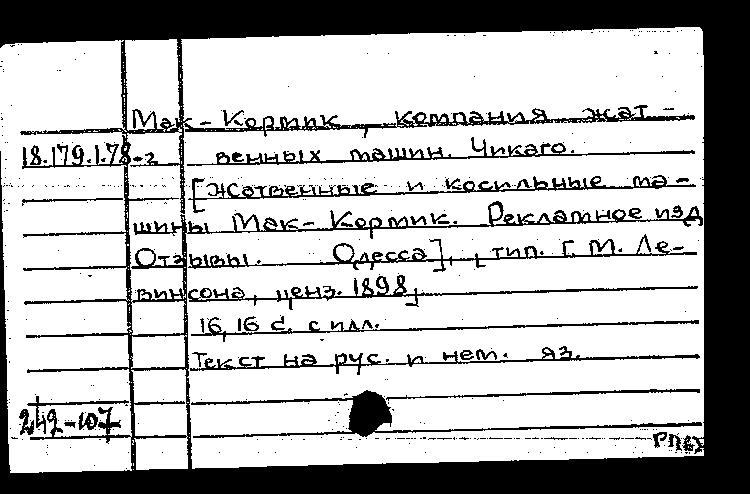 Мак-Кормик, компания жат-
18.179.1.78-2 венных машин. Чикаго.
[Жатвенные и косильные ма-
шины Мак-Кормик. Рекламное изд
Отзывы. Одесса], [тип. Г. М. Ле-
винсона, ценз. 1898]
16, 16 с. с илл.
Текст на рус. и нем. яз.
242-107